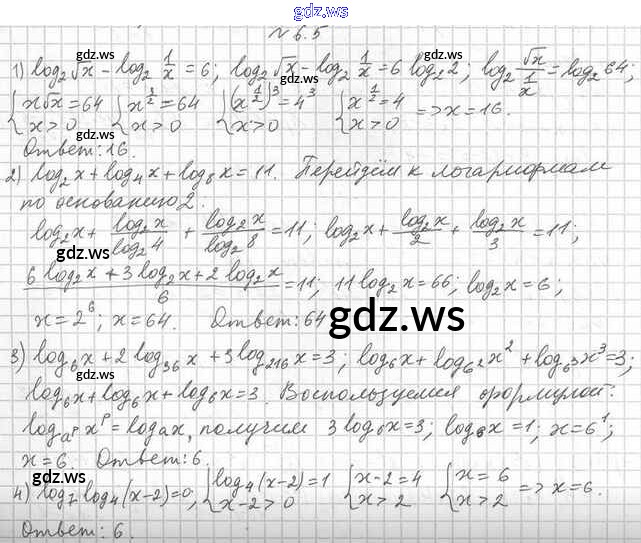 gdz.ws
№ 6.5
1) log₂√x − log₂ 1/x = 6; log₂ √x − log₂ 1/x = 6 log₂2; log₂ √x/(1/x) = log₂ 64;
{x√x = 64 x > 0 {x^(3/2) = 64 x > 0 {(x^(1/2))³ = 4³ x > 0 {x^(1/2) = 4 x > 0 => x = 16.
Ответ: 16.
2) log₂x + log₄x + log₈x = 11. Перейдём к логарифмам
по основанию 2.
log₂x + log₂x/log₂4 + log₂x/log₂8 = 11; log₂x + log₂x/2 + log₂x/3 = 11;
(6 log₂x + 3 log₂x + 2 log₂x)/6 = 11; 11 log₂x = 66; log₂x = 6;
x = 2⁶; x = 64. Ответ: 64
3) log₆x + 2 log₃₆x + 3 log₂₁₆x = 3; log₆x + log₆²x² + log₆³x³ = 3;
log₆x + log₆x + log₆x = 3. Воспользуемся формулой:
log_(aᵖ) xᵖ = logₐx, получим 3 log₆x = 3; log₆x = 1; x = 6¹;
x = 6. Ответ: 6.
4) log₇log₄(x−2) = 0, {log₄(x−2) = 1 x−2 > 0 {x−2 = 4 x > 2 {x = 6 x > 2 => x = 6.
Ответ: 6.
gdz.ws
gdz.ws
gdz.ws
gdz.ws
gdz.ws
gdz.ws
gdz.ws
gdz.ws
gdz.ws
gdz.ws